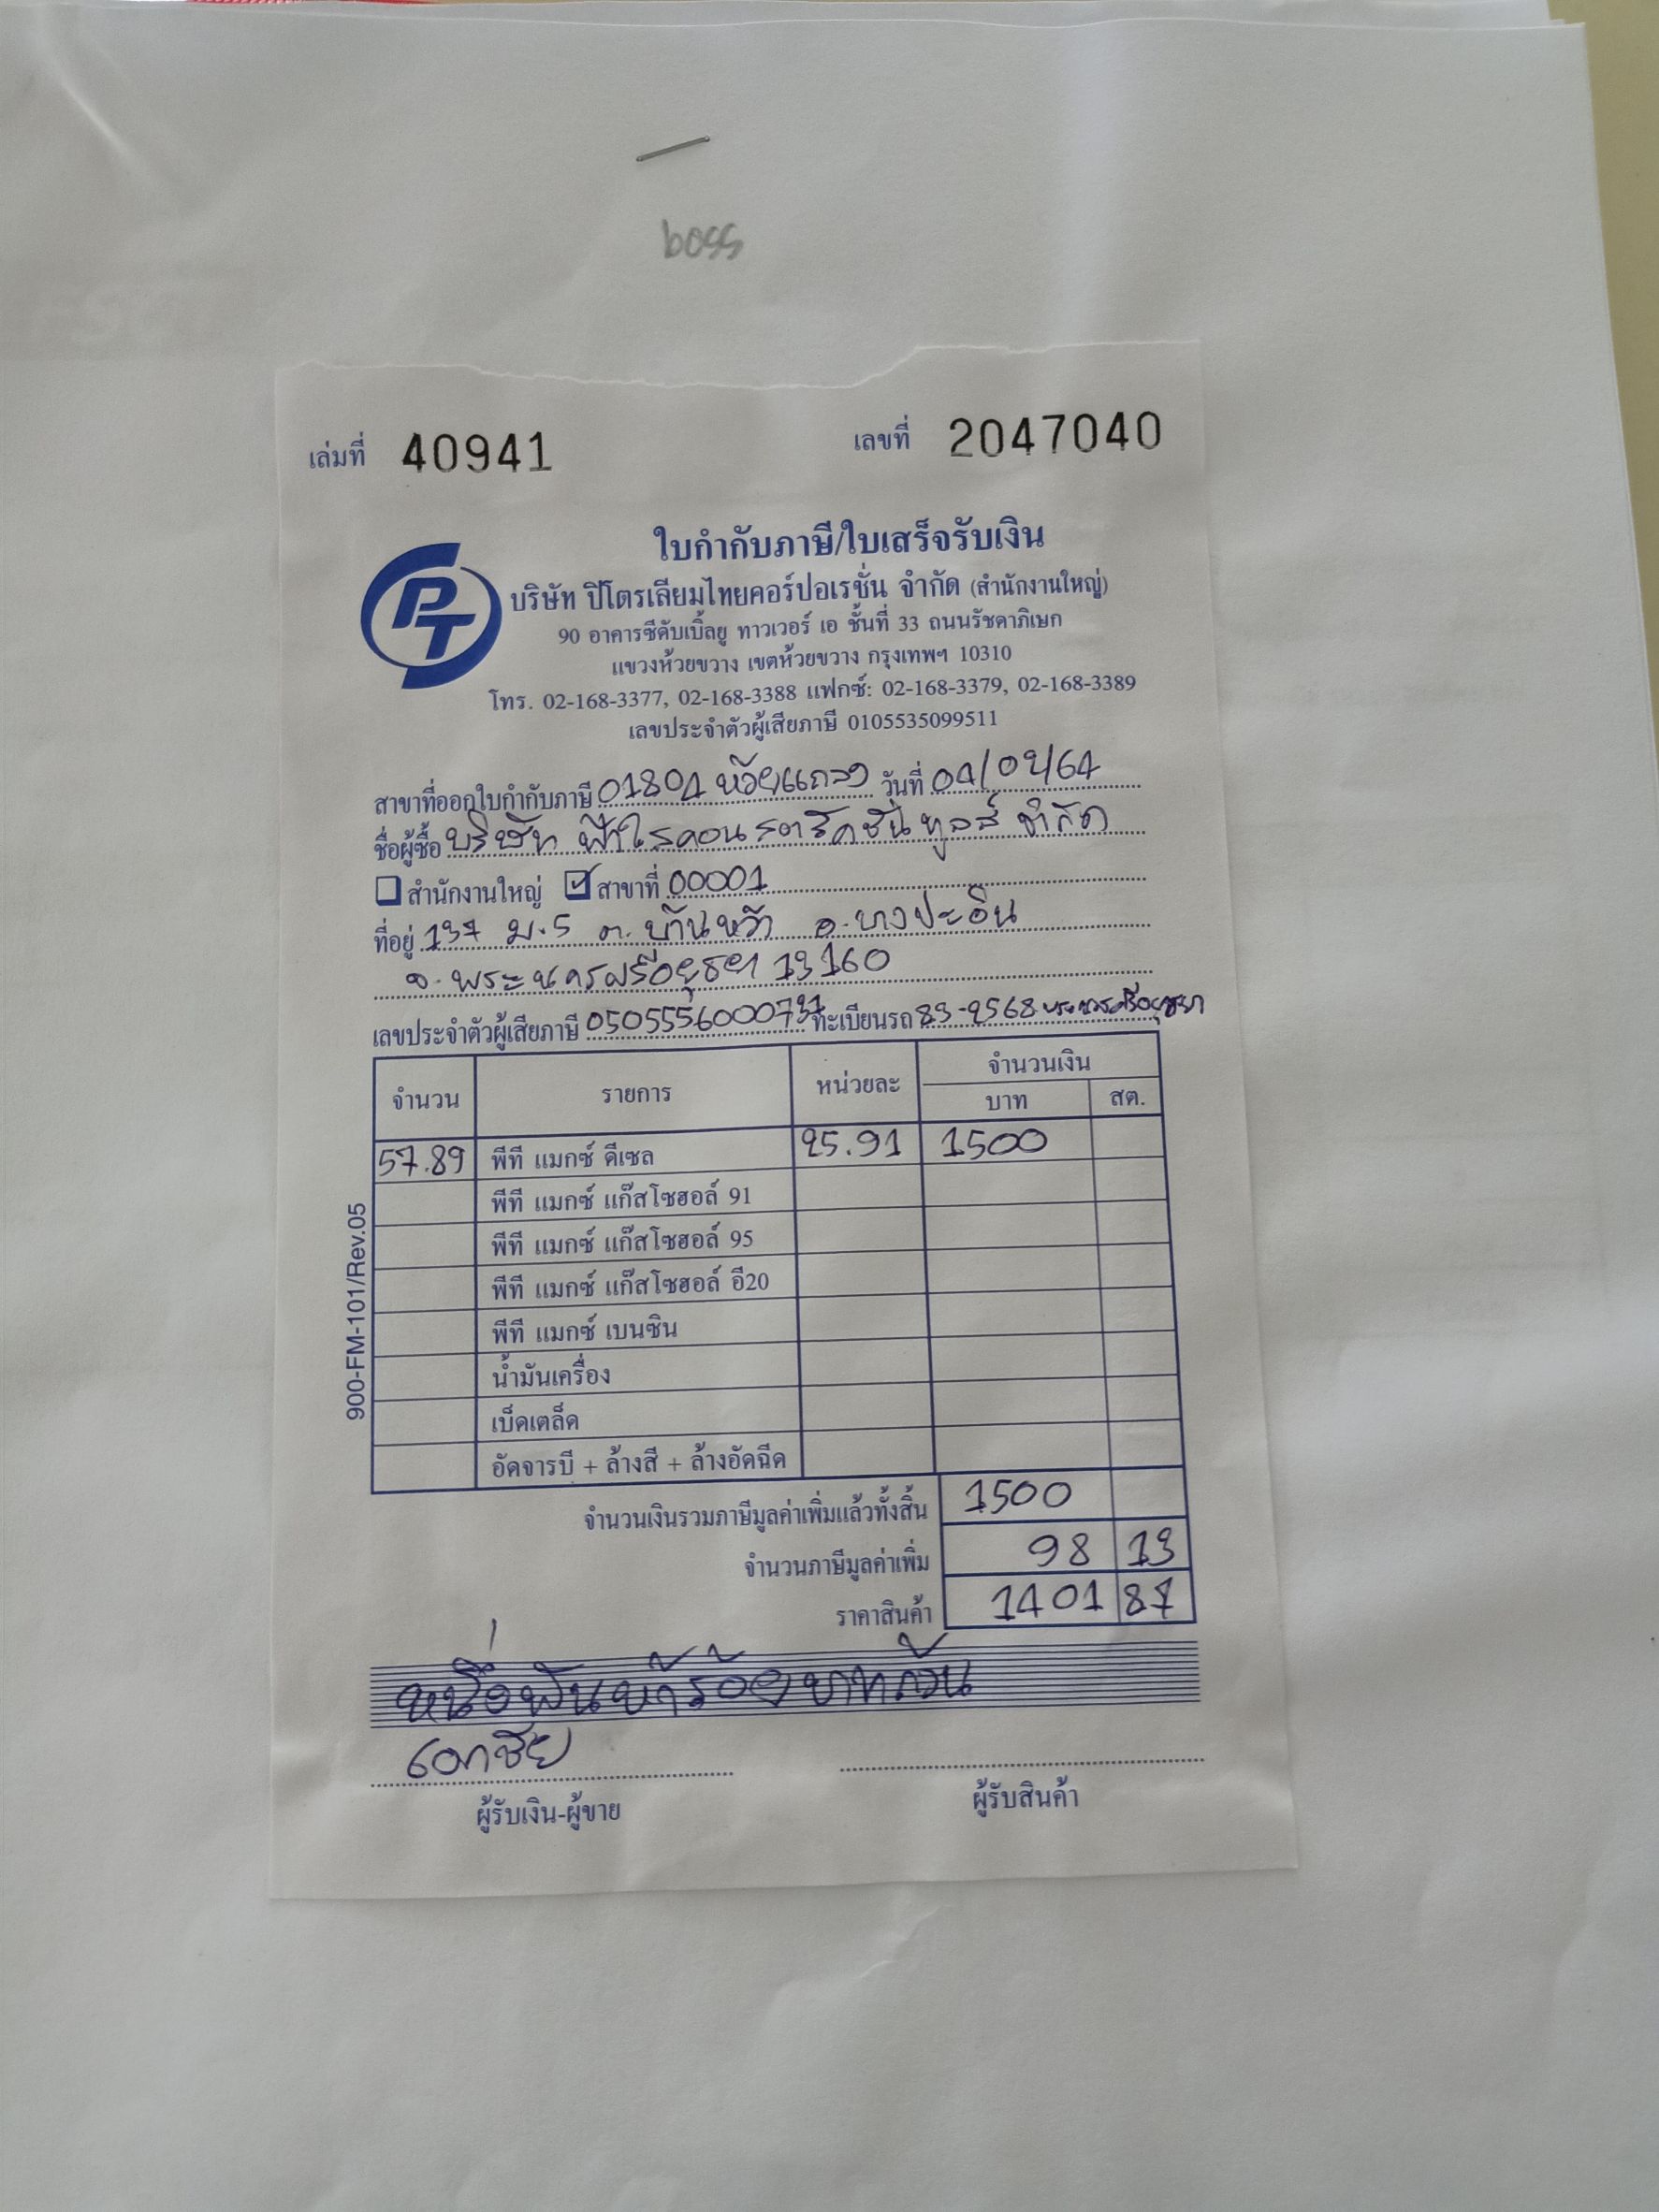 boss
เล่มที่ 40941 เลขที่ 2047040
ใบกำกับภาษี/ใบเสร็จรับเงิน
PT
บริษัท ปิโตรเลียมไทยคอร์ปอเรชั่น จำกัด (สำนักงานใหญ่)
90 อาคารซีดับเบิ้ลยู ทาวเวอร์ เอ ชั้นที่ 33 ถนนรัชดาภิเษก
แขวงห้วยขวาง เขตห้วยขวาง กรุงเทพฯ 10310
โทร. 02-168-3377, 02-168-3388 แฟกซ์: 02-168-3379, 02-168-3389
เลขประจำตัวผู้เสียภาษี 0105535099511
สาขาที่ออกใบกำกับภาษี 01804 ห้วยแถลง วันที่ 04/02/64
ชื่อผู้ซื้อ บริษัท ฟ้าใสคอนสตรัคชั่น ทูลส์ จำกัด
สำนักงานใหญ่ สาขาที่ 00001
ที่อยู่ 137 ม.5 ต.บ้านหว้า อ.บางปะอิน
จ.พระนครศรีอยุธยา 13160
เลขประจำตัวผู้เสียภาษี 0505556000737 ทะเบียนรถ 83-2568 พระนครศรีอยุธยา
จำนวน รายการ หน่วยละ จำนวนเงิน
บาท สต.
57.89 พีที แมกซ์ ดีเซล 25.91 1500
พีที แมกซ์ แก๊สโซฮอล์ 91
พีที แมกซ์ แก๊สโซฮอล์ 95
พีที แมกซ์ แก๊สโซฮอล์ อี20
พีที แมกซ์ เบนซิน
น้ำมันเครื่อง
เบ็ดเตล็ด
อัดจารบี + ล้างสี + ล้างอัดฉีด
900-FM-101/Rev.05
จำนวนเงินรวมภาษีมูลค่าเพิ่มแล้วทั้งสิ้น 1500
จำนวนภาษีมูลค่าเพิ่ม 98 13
ราคาสินค้า 1401 87
หนึ่งพันห้าร้อยบาทถ้วน
เอกชัย
ผู้รับเงิน-ผู้ขาย ผู้รับสินค้า